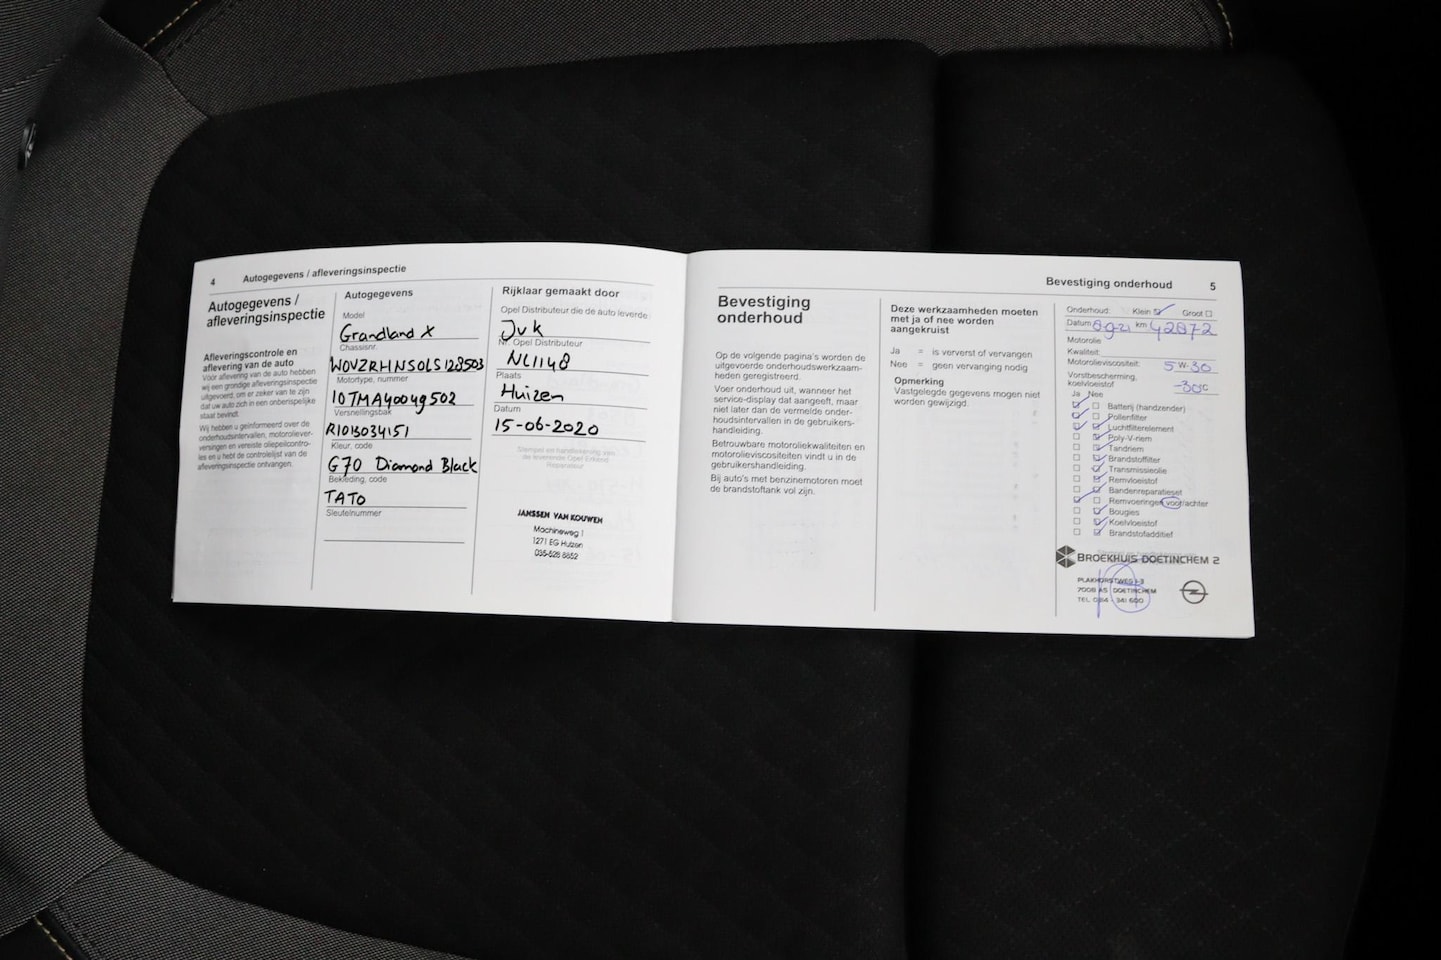 4 Autogegevens / afleveringsinspectie
Autogegevens /
afleveringsinspectie
Afleveringscontrole en
aflevering van de auto
Voor aflevering van de auto hebben
wij een grondige afleveringsinspectie
uitgevoerd, om er zeker van te zijn
dat uw auto zich in een onberispelijke
staat bevindt.
Wij hebben u geïnformeerd over de
onderhoudsintervallen, motoroliever-
versingen en vereiste oliepeilcontro-
les en u hebt de controlelijst van de
afleveringsinspectie ontvangen.
Autogegevens
Model
Grandland X
Chassisnr.
W0VZRHNS0LS128503
Motortype, nummer
10TMAY0049502
Versnellingsbak
R1013034151
Kleur, code
G70 Diamond Black
Bekleding, code
TATO
Sleutelnummer
Rijklaar gemaakt door
Opel Distributeur die de auto leverde
JvK
Nr. Opel Distributeur
NL1148
Plaats
Huizen
Datum
15-06-2020
Stempel en handtekening van
de leverende Opel Erkend
Reparateur
JANSSEN VAN KOUWEN
Machineweg 1
1271 EG Huizen
035-528 8852
Bevestiging onderhoud 5
Bevestiging
onderhoud
Op de volgende pagina's worden de
uitgevoerde onderhoudswerkzaam-
heden geregistreerd.
Voer onderhoud uit, wanneer het
service-display dat aangeeft, maar
niet later dan de vermelde onder-
houdsintervallen in de gebruikers-
handleiding.
Betrouwbare motoroliekwaliteiten en
motorolieviscositeiten vindt u in de
gebruikershandleiding.
Bij auto's met benzinemotoren moet
de brandstoftank vol zijn.
Deze werkzaamheden moeten
met ja of nee worden
aangekruist
Ja = is ververst of vervangen
Nee = geen vervanging nodig
Opmerking
Vastgelegde gegevens mogen niet
worden gewijzigd.
Onderhoud: Klein Groot
Datum km 42872
Motorolie
Kwaliteit:
Motorolieviscositeit: 5 W-30
Vorstbescherming,
koelvloeistof -30c
Ja Nee
Batterij (handzender)
Pollenfilter
Luchtfilterelement
Poly-V-riem
Tandriem
Brandstoffilter
Transmissieolie
Remvloeistof
Bandenreparatieset
Remvoeringen voor/achter
Bougies
Koelvloeistof
Brandstofadditief
BROEKHUIS DOETINCHEM 2
PLAKHORSTWEG 1-3
7008 AS DOETINCHEM
TEL. 0314 - 341 600